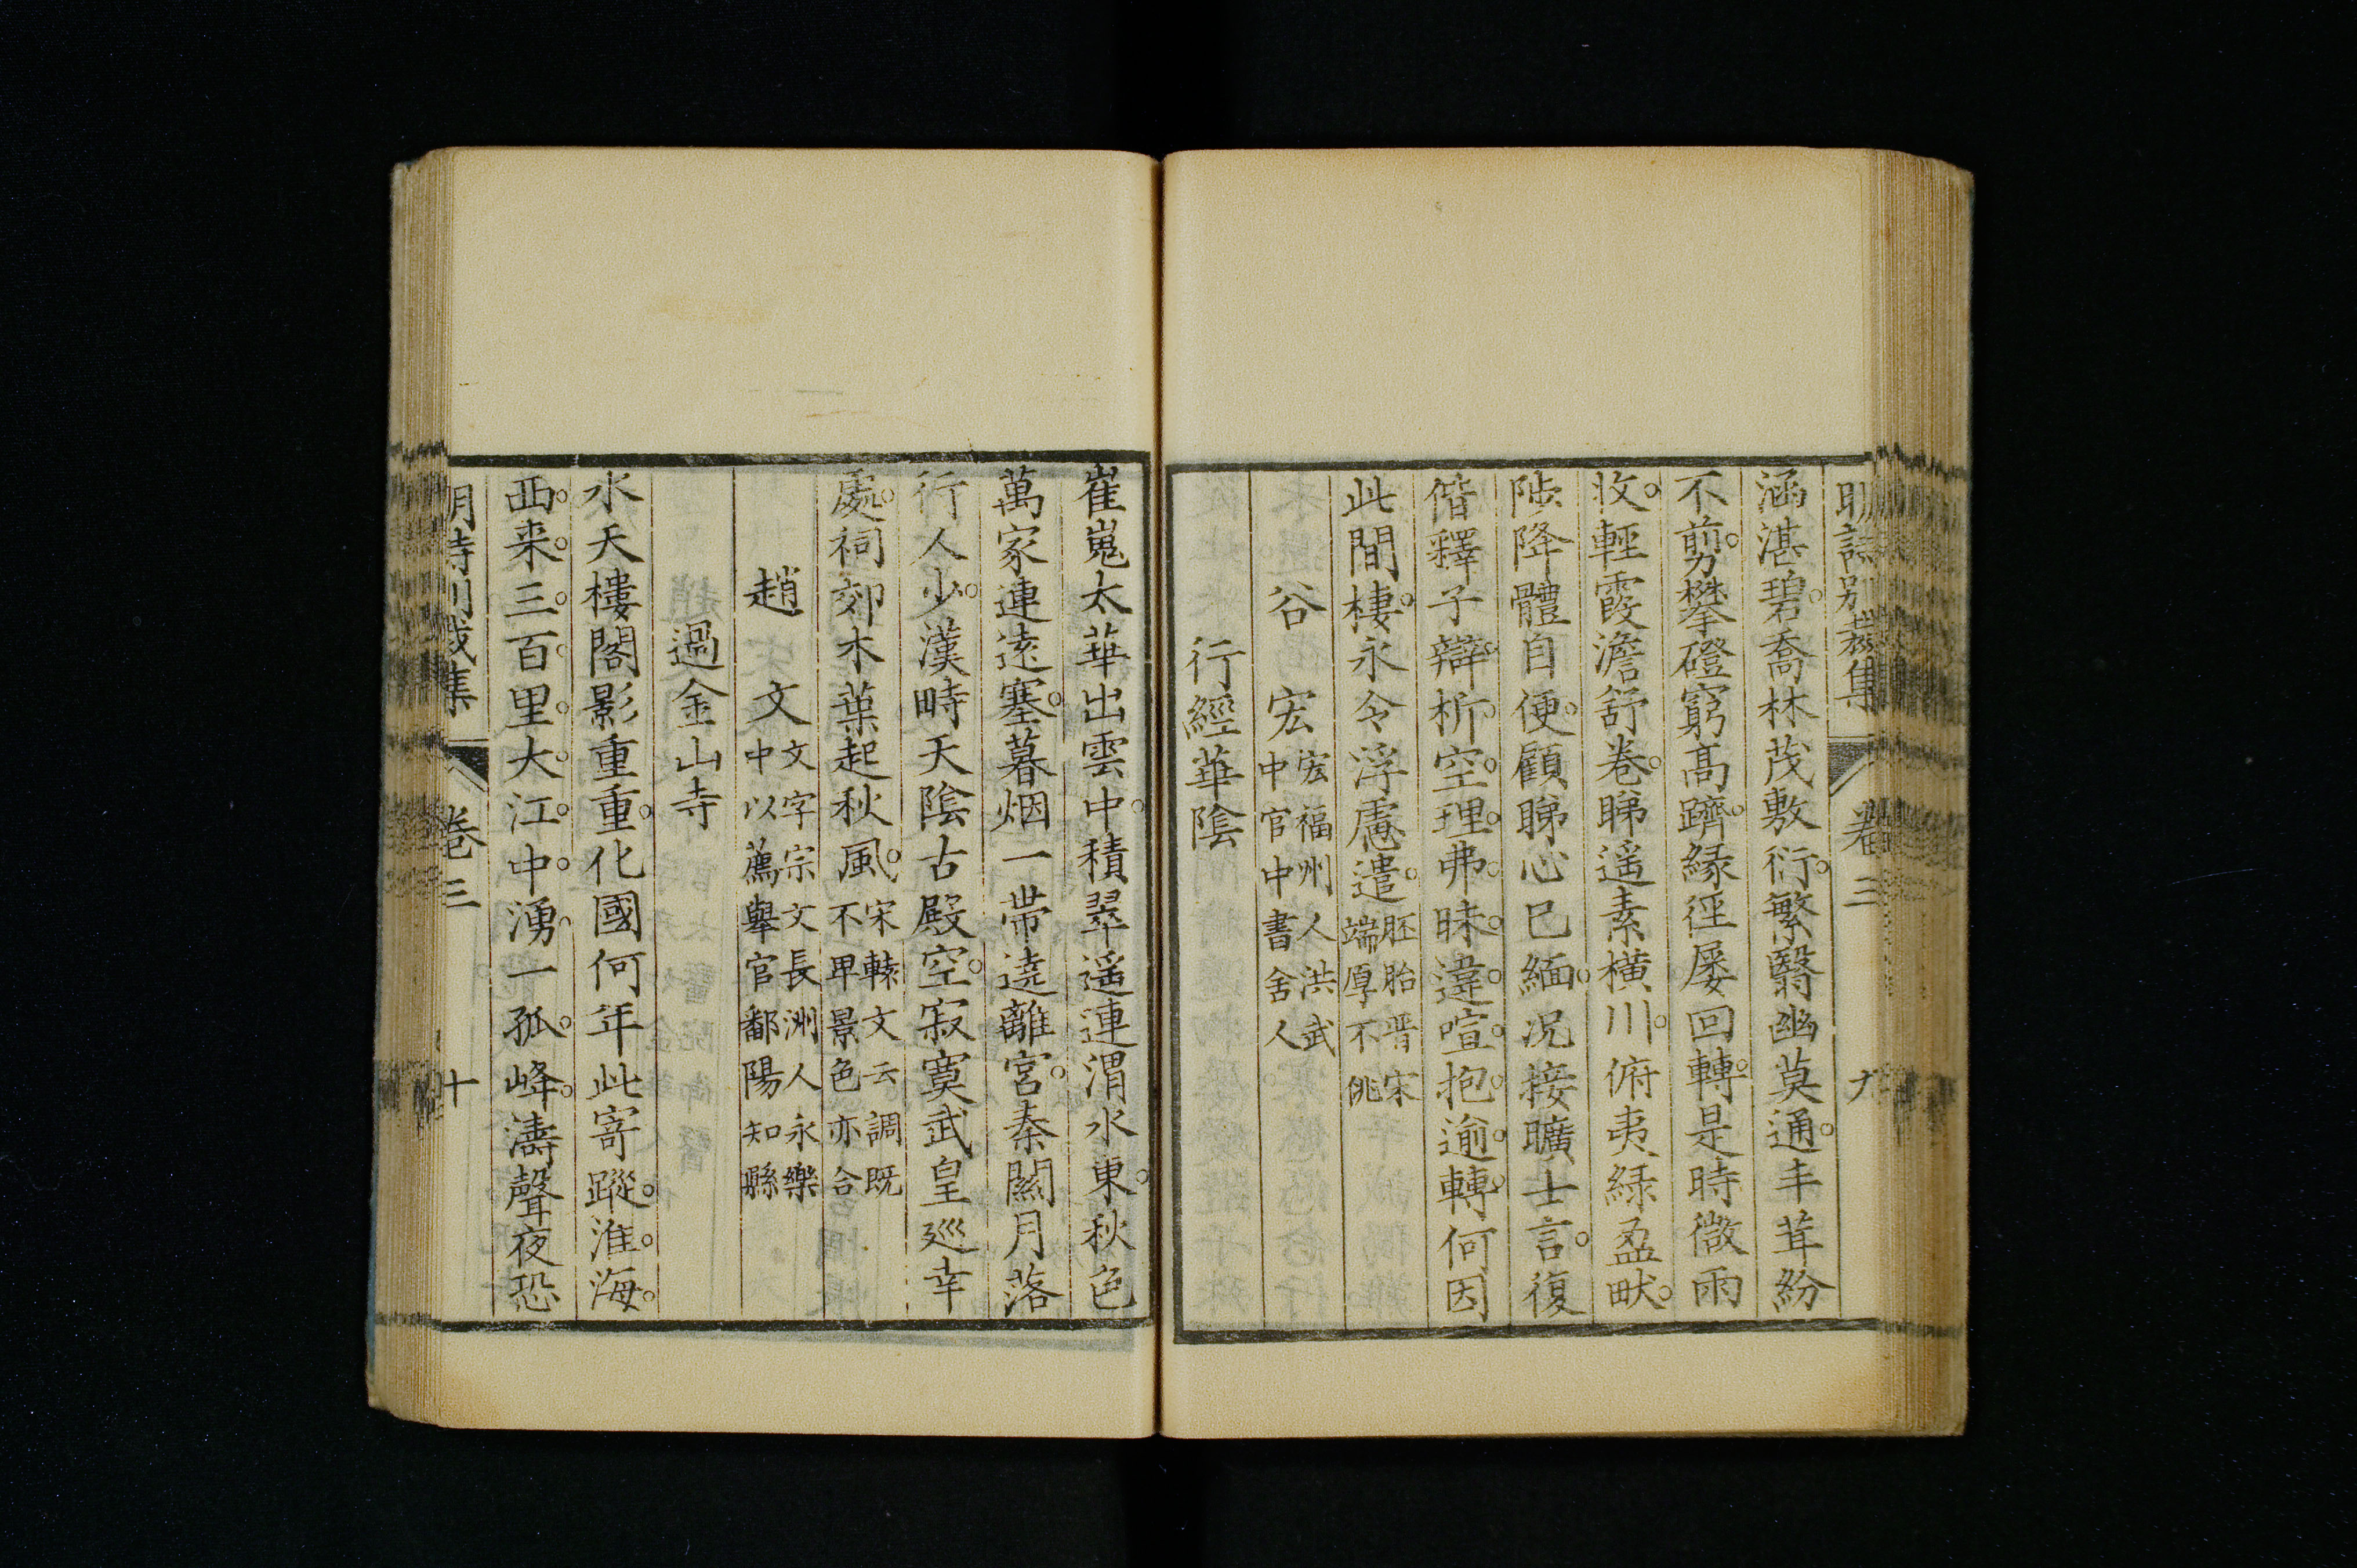 明詩別裁集 卷三 九
涵湛碧喬林茂敷衍繁翳幽莫通丰茸紛
不剪力攀磴窮高躋緣徑屢回轉是時微雨
收輕霞澹舒卷睇遥素橫川俯夷綠盈畎
陟降體自便顧睇心已緬況接曠士言復
偕釋子辯析空理弗昧違喧抱逾轉何因
此間棲永令浮慮遣胚胎晋宋端厚不佻
谷 宏宏福州人洪武中官中書舍人
行經華陰
崔嵬太華出雲中積翠遥連渭水東秋色
萬家連遠塞暮烟一帶遶離宮秦關月落
行人少漢畤天陰古殿空寂寞武皇巡幸
處祠郊木葉起秋風宋轅文云調既不卑景色亦合
趙 文文字宗文長洲人永樂中以薦舉官鄱陽知縣
過金山寺
水天樓閣影重重化國何年此寄蹤淮海
西来三百里大江中湧一孤峰濤聲夜恐
明詩別裁集 卷三 十